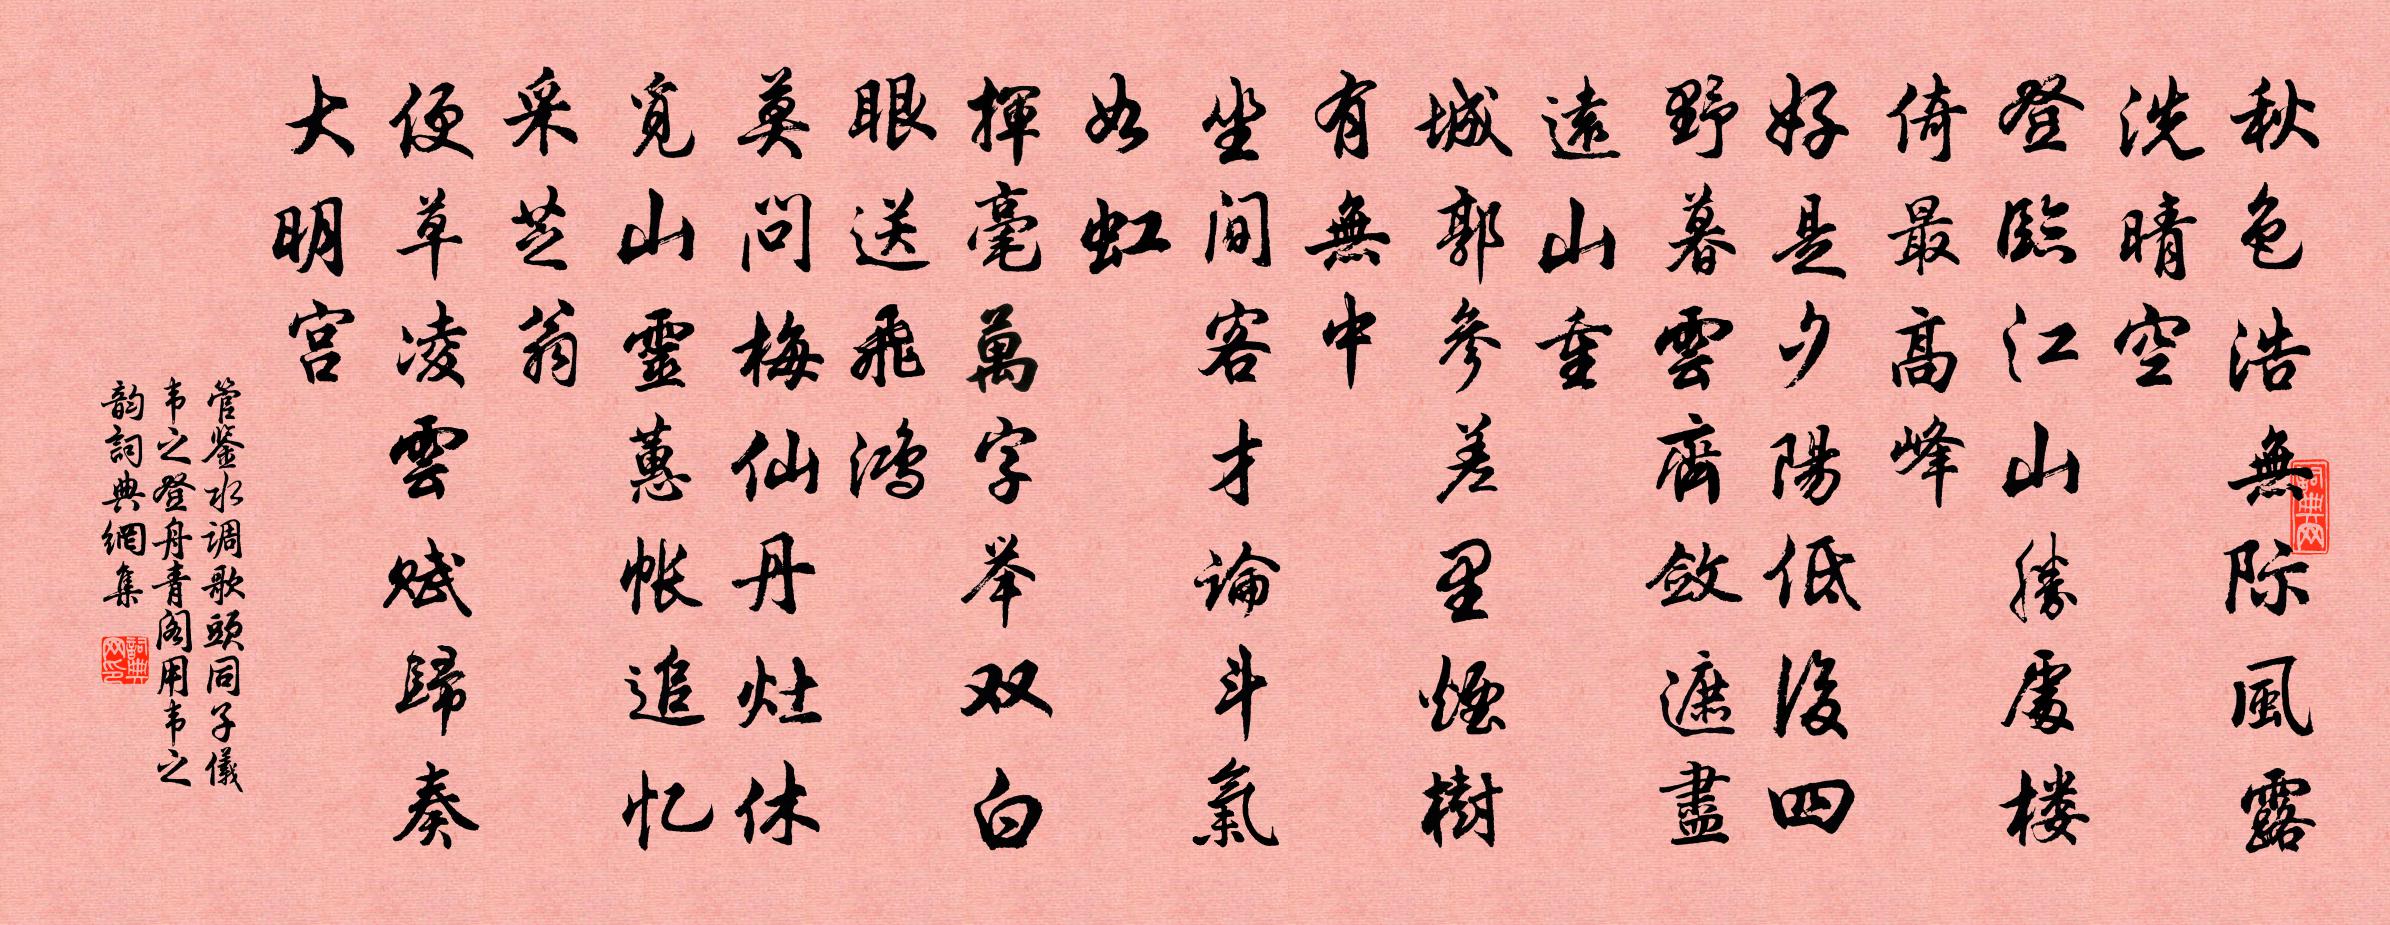 秋色浩無际風露
洗晴空
登臨江山勝處楼
倚最高峰
好是夕陽低後四
野暮雲齊斂遮盡
遠山重
城郭參差里煙樹
有無中
坐间客才論斗氣
如虹
揮毫萬字举双白
眼送飛鸿
莫问梅仙丹灶休
觅山靈蕙帐追忆
采芝翁
便草凌雲赋歸奏
大明宫
管鉴水调歌頭同子儀
韦之登舟青阁用韦之
韵詞典網集
詞典网
詞典网印